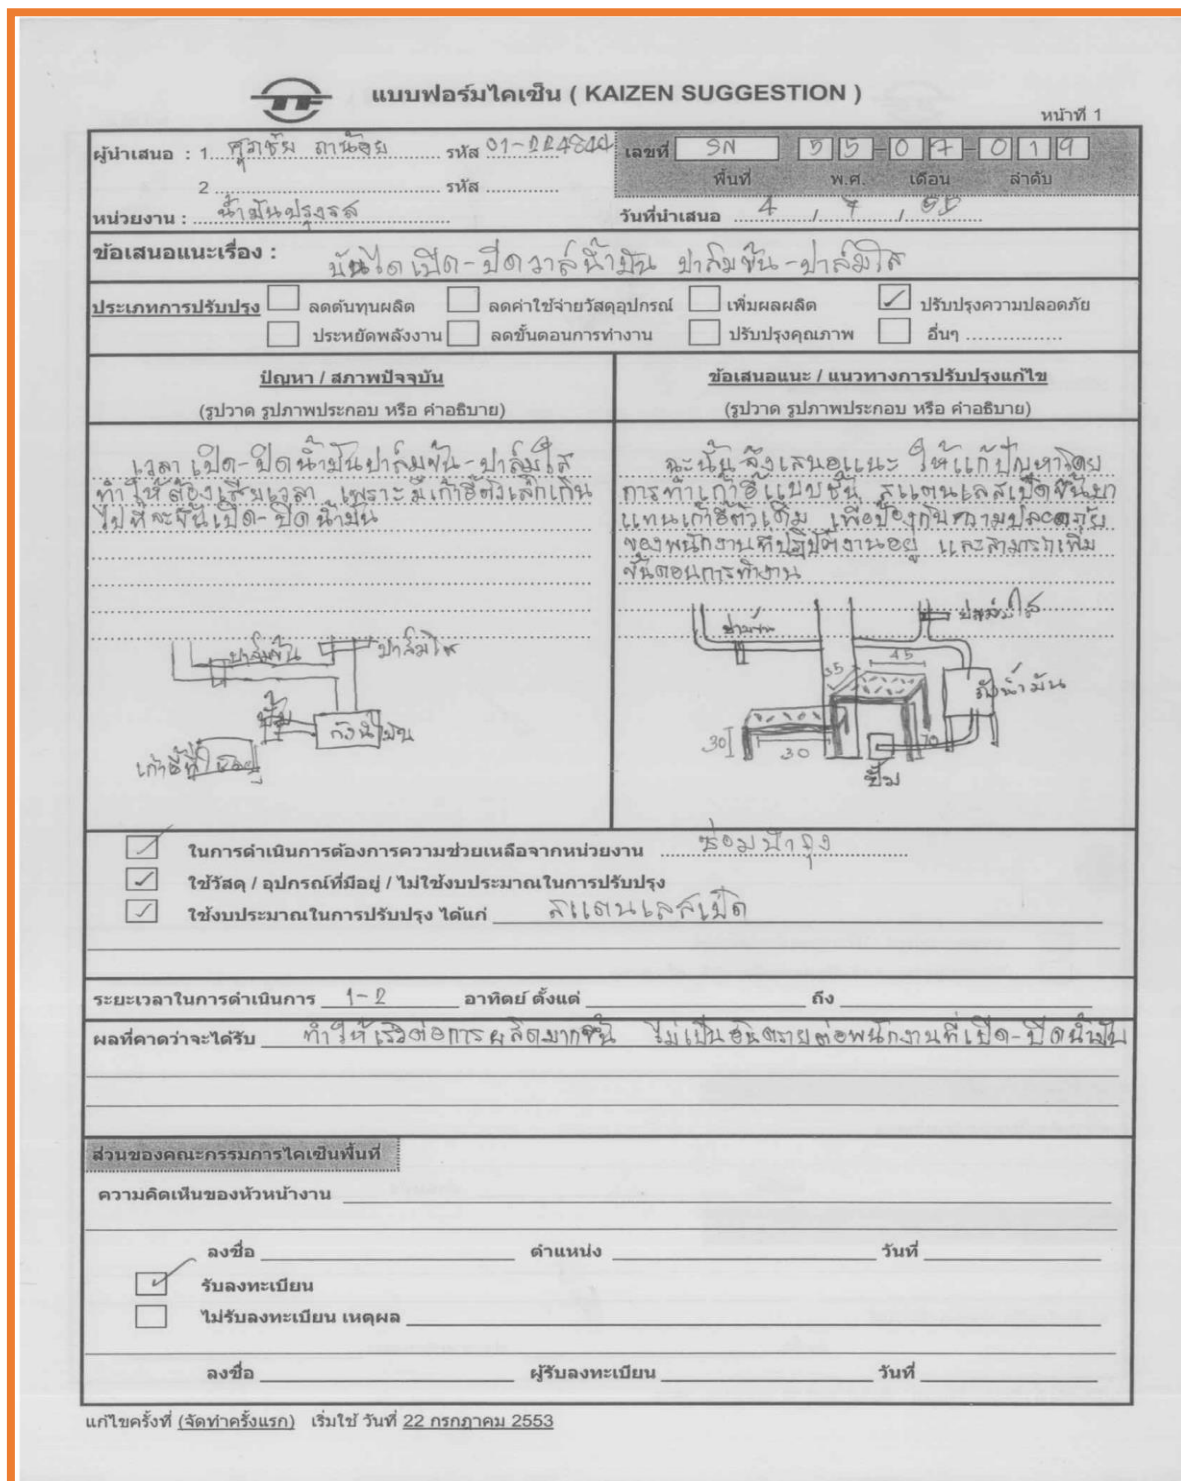 TF
แบบฟอร์มไคเซ็น ( KAIZEN SUGGESTION )
หน้าที่ 1
ผู้นำเสนอ : 1 ศุภชัย ถาน้อย รหัส 01-224844 เลขที่ SN 55-07-019
2 รหัส พื้นที่ พ.ศ. เดือน ลำดับ
หน่วยงาน : น้ำมันปรุงรส วันที่นำเสนอ 4 / 7 / 55
ข้อเสนอแนะเรื่อง : บันไดเปิด-ปิดวาล์น้ำมัน ปาล์มข้น-ปาล์มใส
ประเภทการปรับปรุง ลดต้นทุนผลิต ลดค่าใช้จ่ายวัสดุอุปกรณ์ เพิ่มผลผลิต ✓ ปรับปรุงความปลอดภัย
ประหยัดพลังงาน ลดขั้นตอนการทำงาน ปรับปรุงคุณภาพ อื่นๆ
ปัญหา / สภาพปัจจุบัน
(รูปวาด รูปภาพประกอบ หรือ คำอธิบาย)
เวลา เปิด-ปิดน้ำมันปาล์มข้น-ปาล์มใส
ทำให้ต้องเสียเวลา เพราะมีเก้าอี้ตัวเล็กเกิน
ไปที่จะขึ้นเปิด-ปิดน้ำมัน
ปาล์มข้น ปาล์มใส
ปั้ม ถังน้ำมัน
เก้าอี้ที่ใช้อยู่
ข้อเสนอแนะ / แนวทางการปรับปรุงแก้ไข
(รูปวาด รูปภาพประกอบ หรือ คำอธิบาย)
ฉะนั้น จึงเสนอแนะ ให้แก้ปัญหาโดย
การทำเก้าอี้แบบชั้น สแตนเลสเป็ดขึ้นมา
แทนเก้าอี้ตัวเดิม เพื่อป้องกันความปลอดภัย
ของพนักงานที่ปฏิบัติงานอยู่ และสามารถเพิ่ม
ขั้นตอนการทำงาน
ปาล์มใส
35 45
ถังน้ำมัน
30 30 70
ปั้ม
✓ ในการดำเนินการต้องการความช่วยเหลือจากหน่วยงาน ซ่อมบำรุง
✓ ใช้วัสดุ / อุปกรณ์ที่มีอยู่ / ไม่ใช้งบประมาณในการปรับปรุง
✓ ใช้งบประมาณในการปรับปรุง ได้แก่ สแตนเลสเป็ด
ระยะเวลาในการดำเนินการ 1-2 อาทิตย์ ตั้งแต่ ถึง
ผลที่คาดว่าจะได้รับ ทำให้เร็วต่อการผลิตมากขึ้น ไม่เป็นอันตรายต่อพนักงานที่เปิด-ปิดน้ำมัน
ส่วนของคณะกรรมการไคเซ็นพื้นที่
ความคิดเห็นของหัวหน้างาน
ลงชื่อ ตำแหน่ง วันที่
✓ รับลงทะเบียน
ไม่รับลงทะเบียน เหตุผล
ลงชื่อ ผู้รับลงทะเบียน วันที่
แก้ไขครั้งที่ (จัดทำครั้งแรก) เริ่มใช้ วันที่ 22 กรกฎาคม 2553